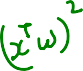 (x^T w)^2